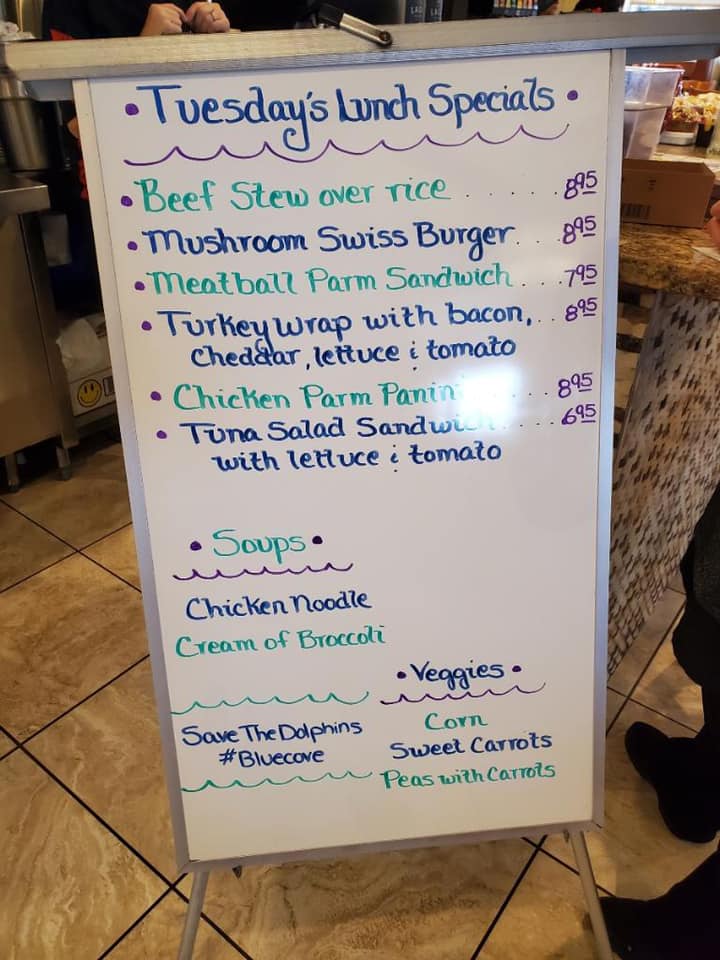 • Tuesday's Lunch Specials •
• Beef Stew over rice . . . . . 895
• Mushroom Swiss Burger . . . 895
• Meatball Parm Sandwich . . . 795
• Turkey wrap with bacon, . . 895
cheddar, lettuce & tomato
• Chicken Parm Panini . . . . 895
• Tuna Salad Sandwich . . . . 695
with lettuce & tomato
• Soups •
Chicken Noodle
Cream of Broccoli
Save The Dolphins
#Bluecove
• Veggies •
Corn
Sweet Carrots
Peas with Carrots